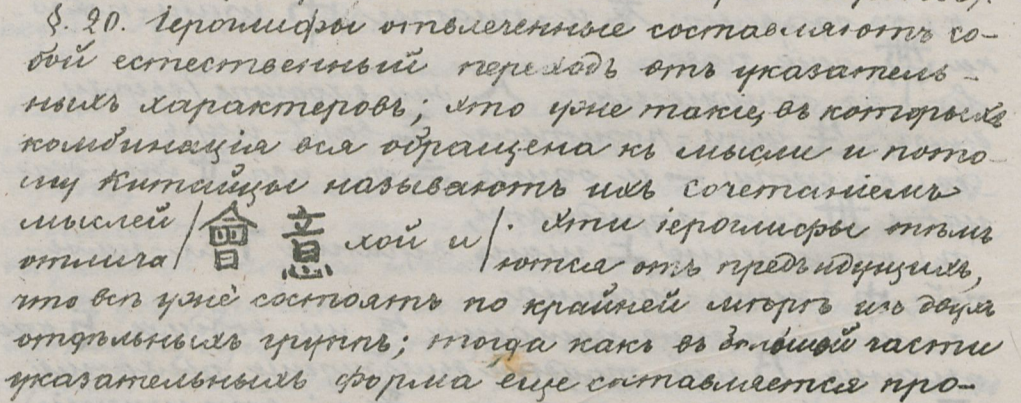 §. 20. Іероглифы отвлеченные составляютъ со-
бой естественный переходъ отъ указатель-
ныхъ характеровъ; это уже такіе, въ которыхъ
комбинація вся обращена къ мысли и пото-
му Китайцы называютъ ихъ сочетаніемъ
мыслей /會意 хой и/. Эти іероглифы тѣмъ
отличаются отъ предъидущихъ,
что всѣ уже состоятъ по крайней мѣрѣ изъ двухъ
отдѣльныхъ группъ; тогда какъ въ большой части
указательныхъ форма еще составляется про-